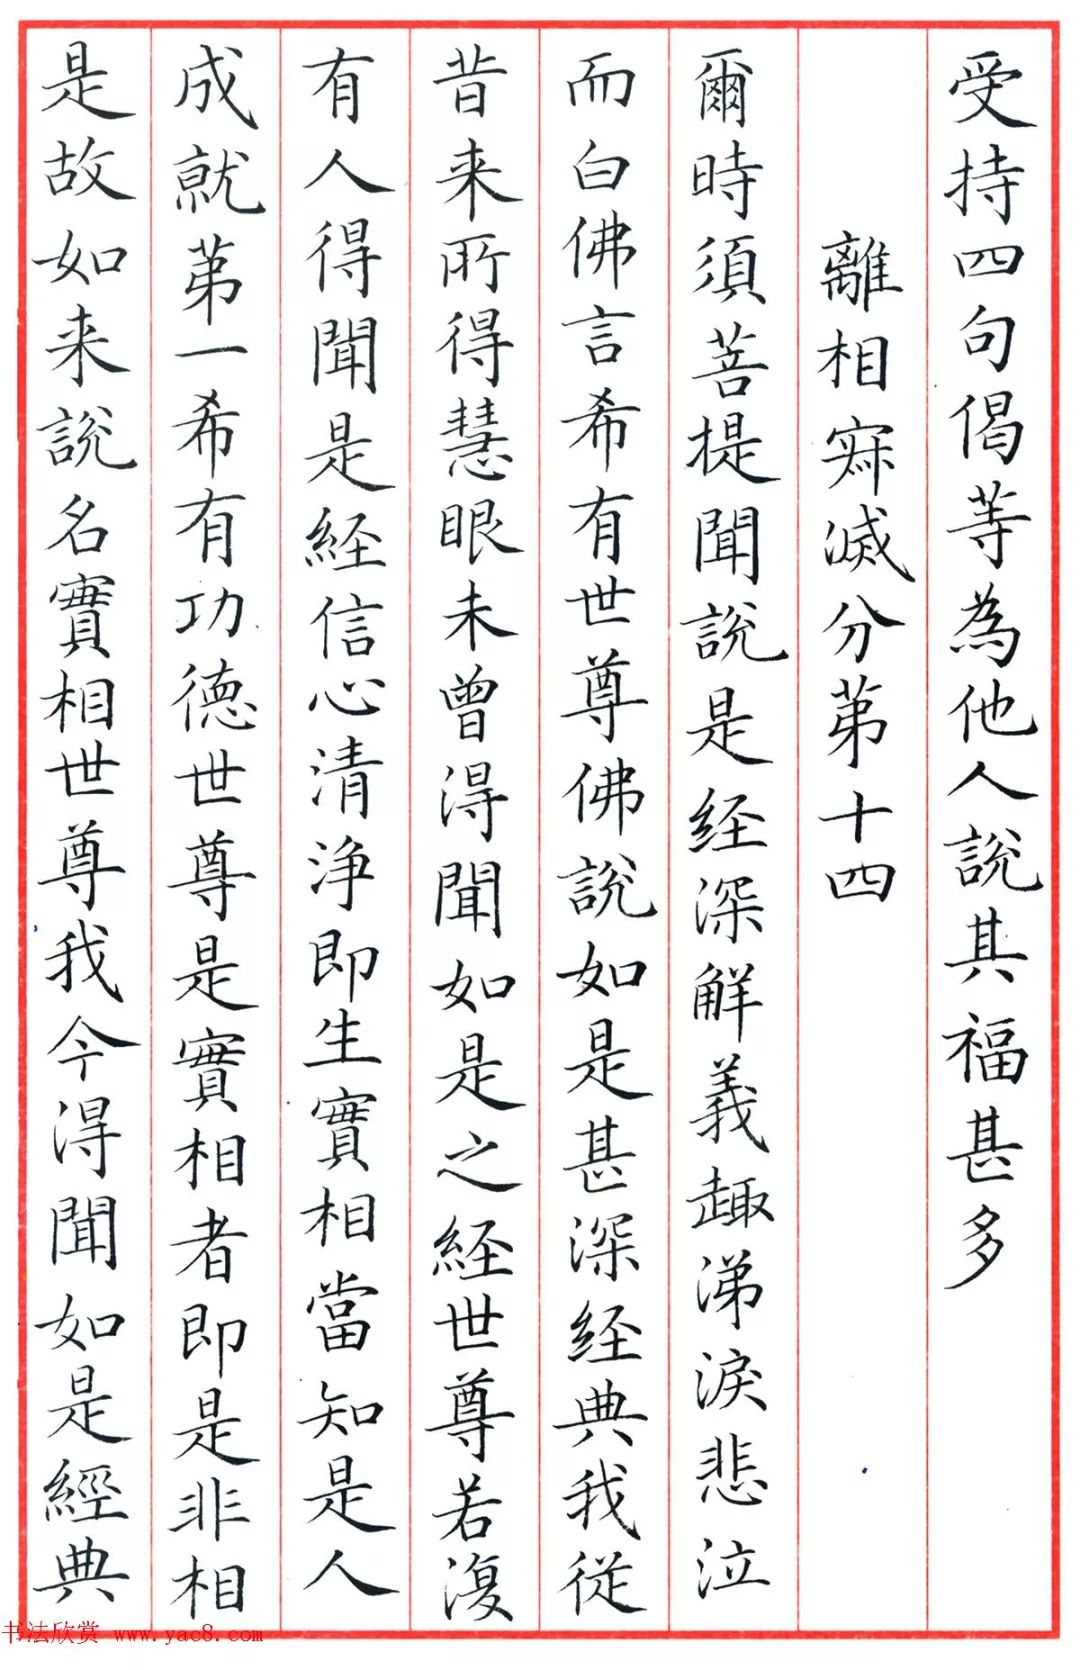 受持四句偈等為他人說其福甚多
離相寂滅分第十四
爾時須菩提聞說是経深解義趣涕淚悲泣
而白佛言希有世尊佛說如是甚深経典我從
昔来所得慧眼未曾得聞如是之経世尊若復
有人得聞是経信心清淨即生實相當知是人
成就第一希有功德世尊是實相者即是非相
是故如来說名實相世尊我今得聞如是經典
书法欣赏 www.yac8.com